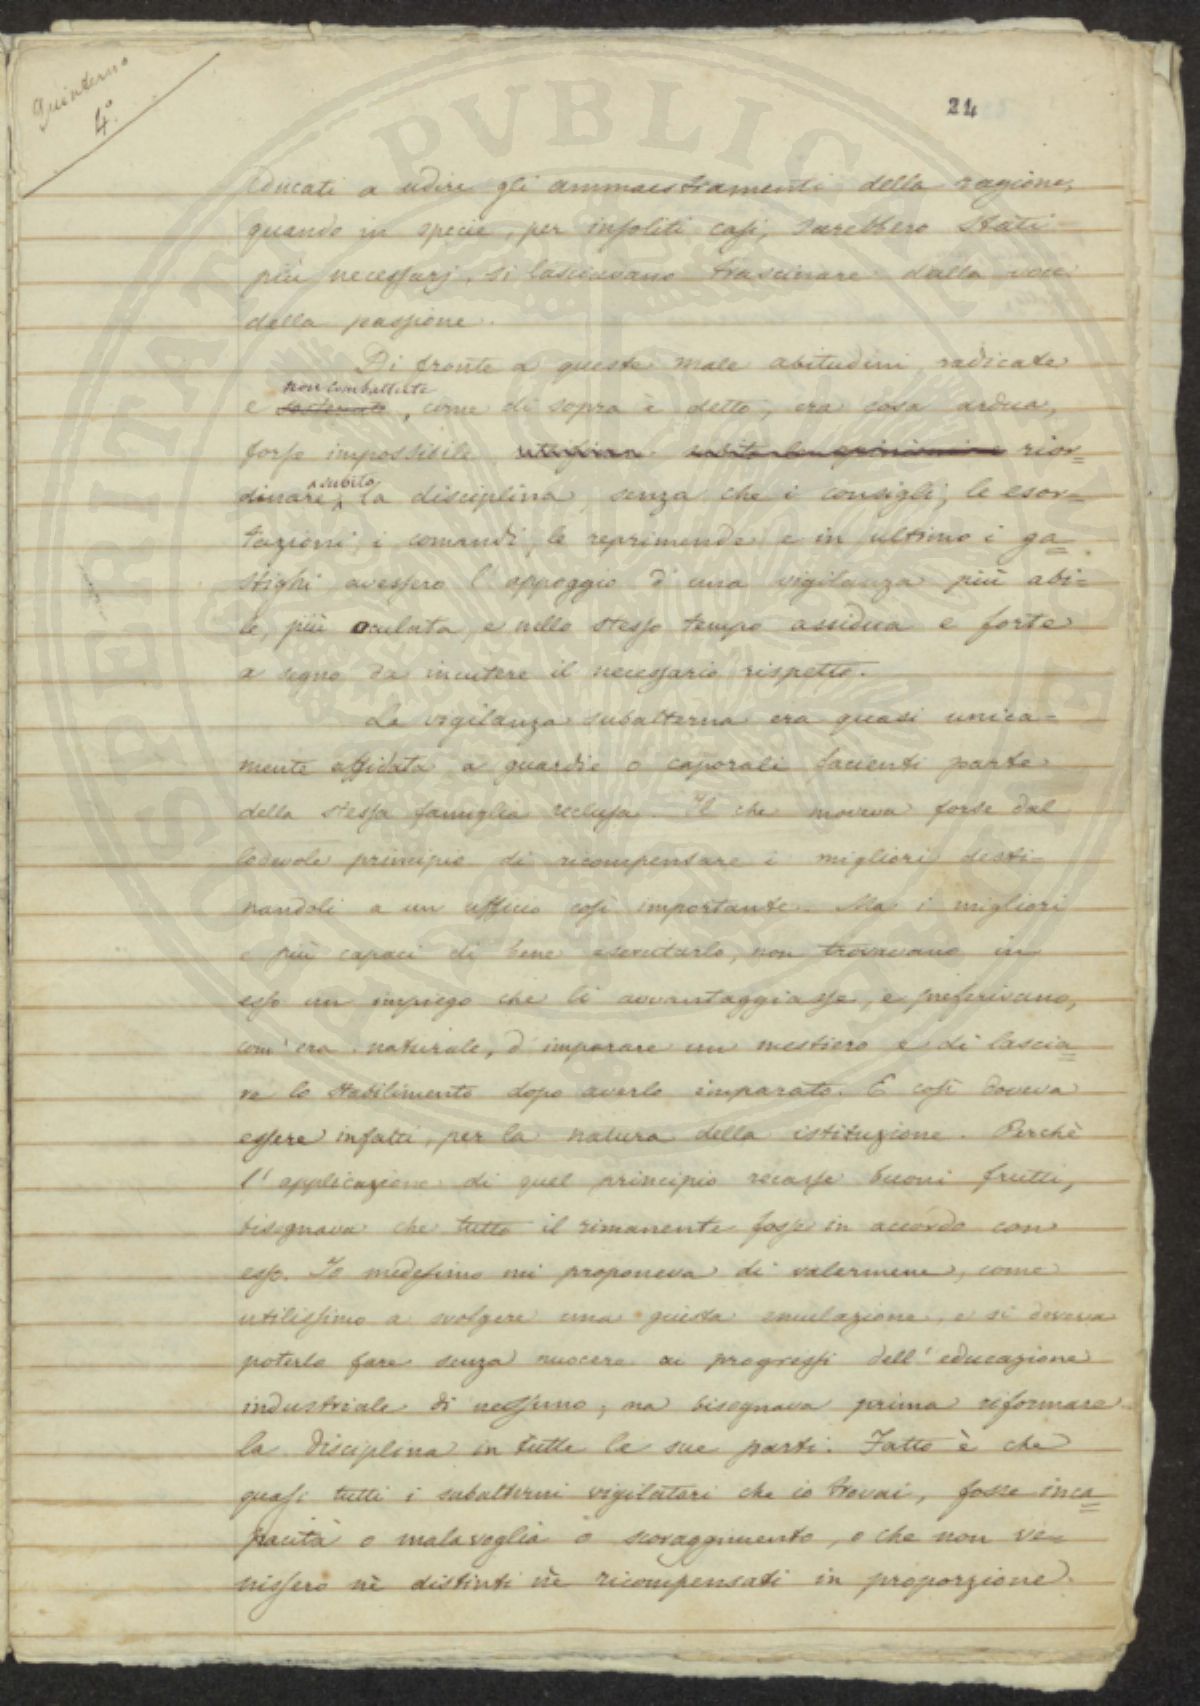 Quinterno
4°.
24
educati a udire gli ammaestramenti della ragione,
quando in specie, per insoliti casi, sarebbero stati
più necessarj, si lasciavano trascinare dalla voce
della passione.
Di fronte a queste male abitudini radicate
non combattute
e, come di sopra è detto, era cosa ardua,
forse impossibile rior=
subito
dinare la disciplina, senza che i consigli, le esor=
tazioni, i comandi, le reprimende e in ultimo i ga=
stighi avessero l'appoggio d'una vigilanza più abi=
le, più oculata, e nello stesso tempo assidua e forte
a segno da incutere il necessario rispetto.
La vigilanza subalterna era quasi unica=
mente affidata a guardie o caporali facienti parte
della stessa famiglia reclusa. Il che moveva forse dal
lodevole principio di ricompensare i migliori desti=
nandoli a un ufficio così importante. Ma i migliori
e più capaci di bene esercitarlo, non trovavano in
esso un impiego che li avvantaggiasse, e preferivano,
com'era naturale, d'imparare un mestiero e di lascia=
re lo stabilimento dopo averlo imparato. E così doveva
essere infatti, per la natura della istituzione. Perchè
l'applicazione di quel principio recasse buoni frutti,
bisognava che tutto il rimanente fosse in accordo con
esso. Io medesimo mi proponeva di valermene, come
utilissimo a svolgere una giusta emulazione, e si doveva
poterlo fare senza nuocere ai progressi dell'educazione
industriale di nessuno; ma bisognava prima riformare
la disciplina in tutte le sue parti. Fatto è che
quasi tutti i subalterni vigilatori che io trovai, fosse inca=
pacità o mala voglia o scoraggimento, o che non ve=
nissero nè distinti nè ricompensati in proporzione